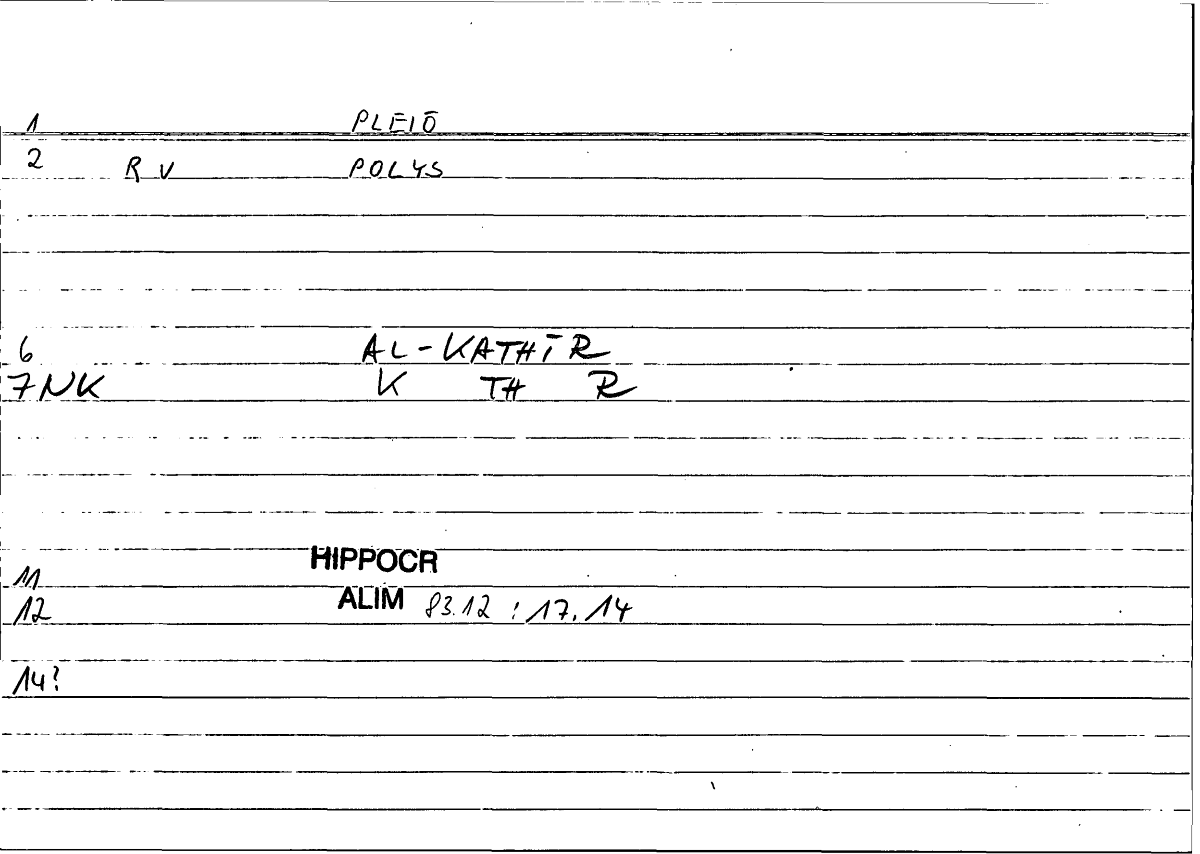 1 PLEIŌ
2 R V POLYS
6 AL-KATHĪR
7 NK K TH R
HIPPOCR
11
12 ALIM 83.12 : 17.14
14?